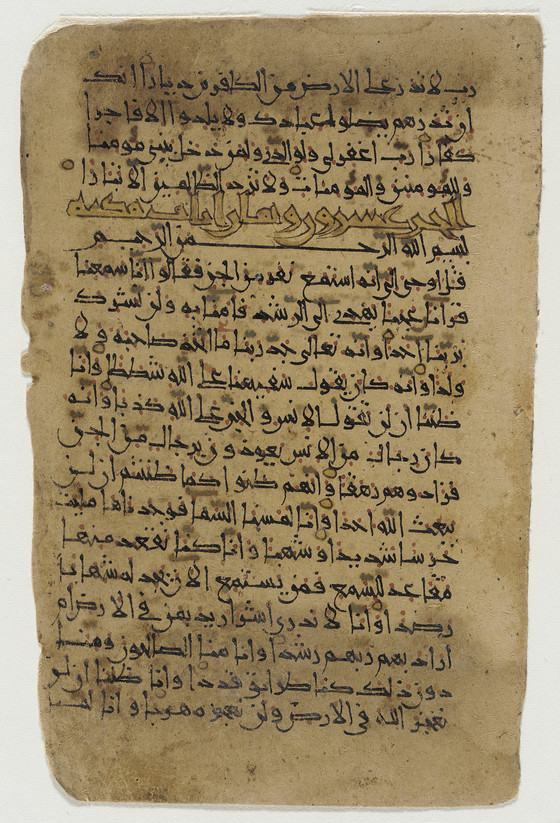 رب لا تذر على الارض من الكافرين ديارا انك
ان تذرهم يضلوا عبادك ولا يلدوا الا فاجرا
كفارا رب اغفر لي ولوالدي ولمن دخل بيتي مومنا
وللمومنين والمومنات ولا تزد الظالمين الا تبارا
الجن عشرون وثمان ايات مكية
بسم الله الرحمن الرحيم
قل اوحي الي انه استمع نفر من الجن فقالوا انا سمعنا
قرانا عجبا يهدي الى الرشد فامنا به ولن نشرك
بربنا احدا وانه تعالى جد ربنا ما اتخذ صاحبة ولا
ولدا وانه كان يقول سفيهنا على الله شططا وانا
ظننا ان لن تقول الانس والجن على الله كذبا وانه
كان رجال من الانس يعوذون برجال من الجن
فزادوهم رهقا وانهم ظنوا كما ظننتم ان لن
يبعث الله احدا وانا لمسنا السما فوجدناها مليت
حرسا شديدا وشهبا وانا كنا نقعد منها
مقاعد للسمع فمن يستمع الان يجد له شهابا
رصدا وانا لا ندري اشر اريد بمن في الارض ام
اراد بهم ربهم رشدا وانا منا الصالحون ومنا
دون ذلك كنا طرائق قددا وانا ظننا ان لن
نعجز الله في الارض ولن نعجزه هربا وانا لما